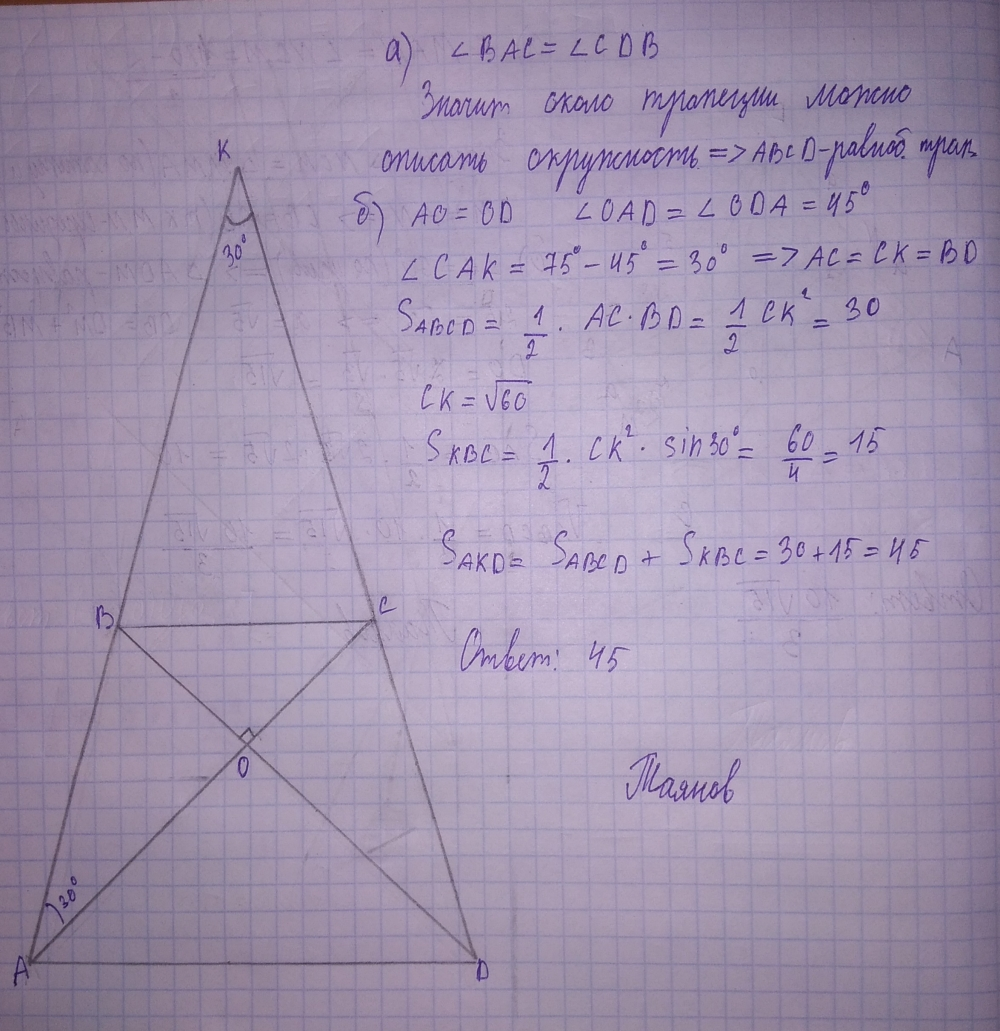 а) ∠BAC = ∠CDB
Значит около трапеции можно
описать окружность => ABCD-равноб. трап.
б) AO = OD ∠OAD = ∠ODA = 45°
∠CAK = 75° - 45° = 30° => AC = CK = BD
S_ABCD = 1/2 · AC · BD = 1/2 CK² = 30
CK = √60
S_KBC = 1/2 · CK² · sin30° = 60/4 = 15
S_AKD = S_ABCD + S_KBC = 30 + 15 = 45
Ответ: 45
Таянов
K
30°
B
C
O
30°
A
D